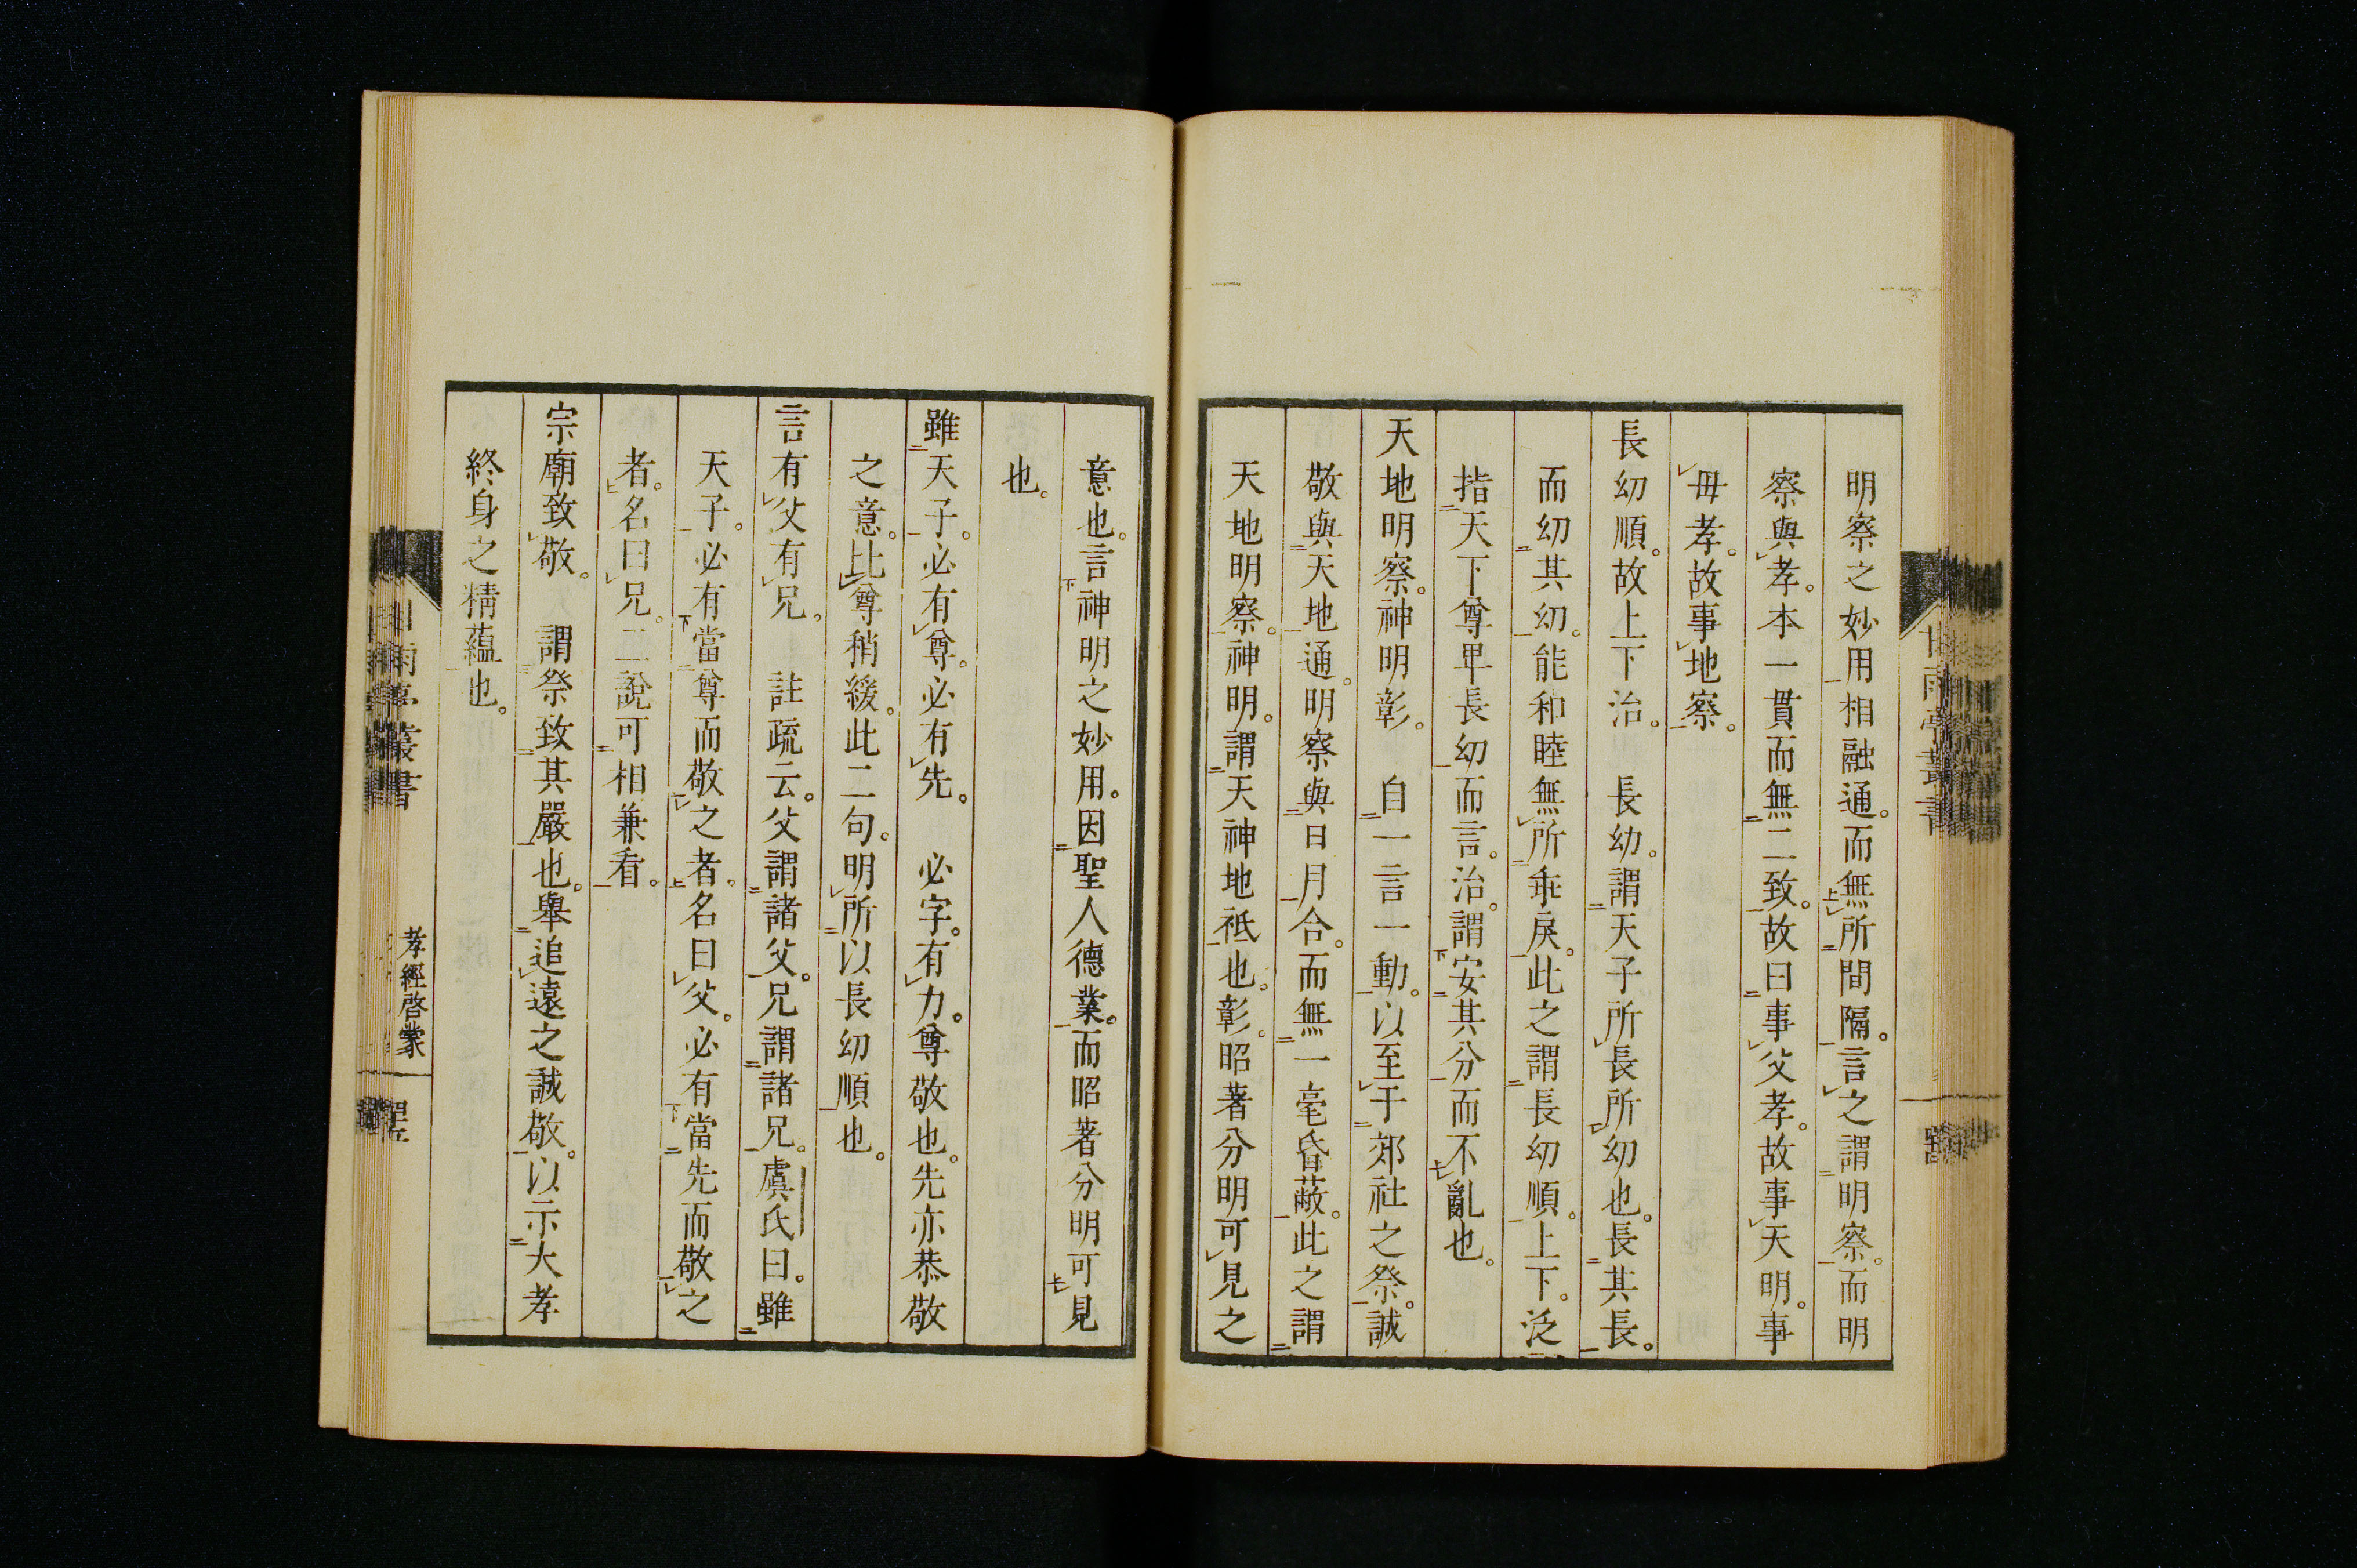 明察之妙用相融通。而無所間隔。言之謂明察。而明
察與孝。本一貫而無二致。故曰事父孝。故事天明。事
毋孝。故事地察。
長幼順。故上下治。 長幼。謂天子所長所幼也。長其長。
而幼其幼。能和睦無所乖戾。此之謂長幼順。上下。泛
指天下尊卑長幼而言。治。謂安其分而不亂也。
天地明察。神明彰。 自一言一動。以至于郊社之祭。誠
敬與天地通。明察與日月合。而無一毫昏蔽。此之謂
天地明察。神明。謂天神地祇也。彰。昭著分明可見之
意也。言神明之妙用。因聖人德業。而昭著分明可見
也。
雖天子。必有尊。必有先。 必字。有力。尊敬也。先亦恭敬
之意。比尊稍緩。此二句。明所以長幼順也。
言有父有兄。 註疏云。父謂諸父。兄謂諸兄。虞氏曰。雖
天子。必有當尊而敬之者。名曰父。必有當先而敬之
者。名曰兄。二說可相兼看。
宗廟致敬。 謂祭致其嚴也。舉追遠之誠敬。以示大孝
終身之精蘊也。
甘雨亭叢書
孝經啓蒙